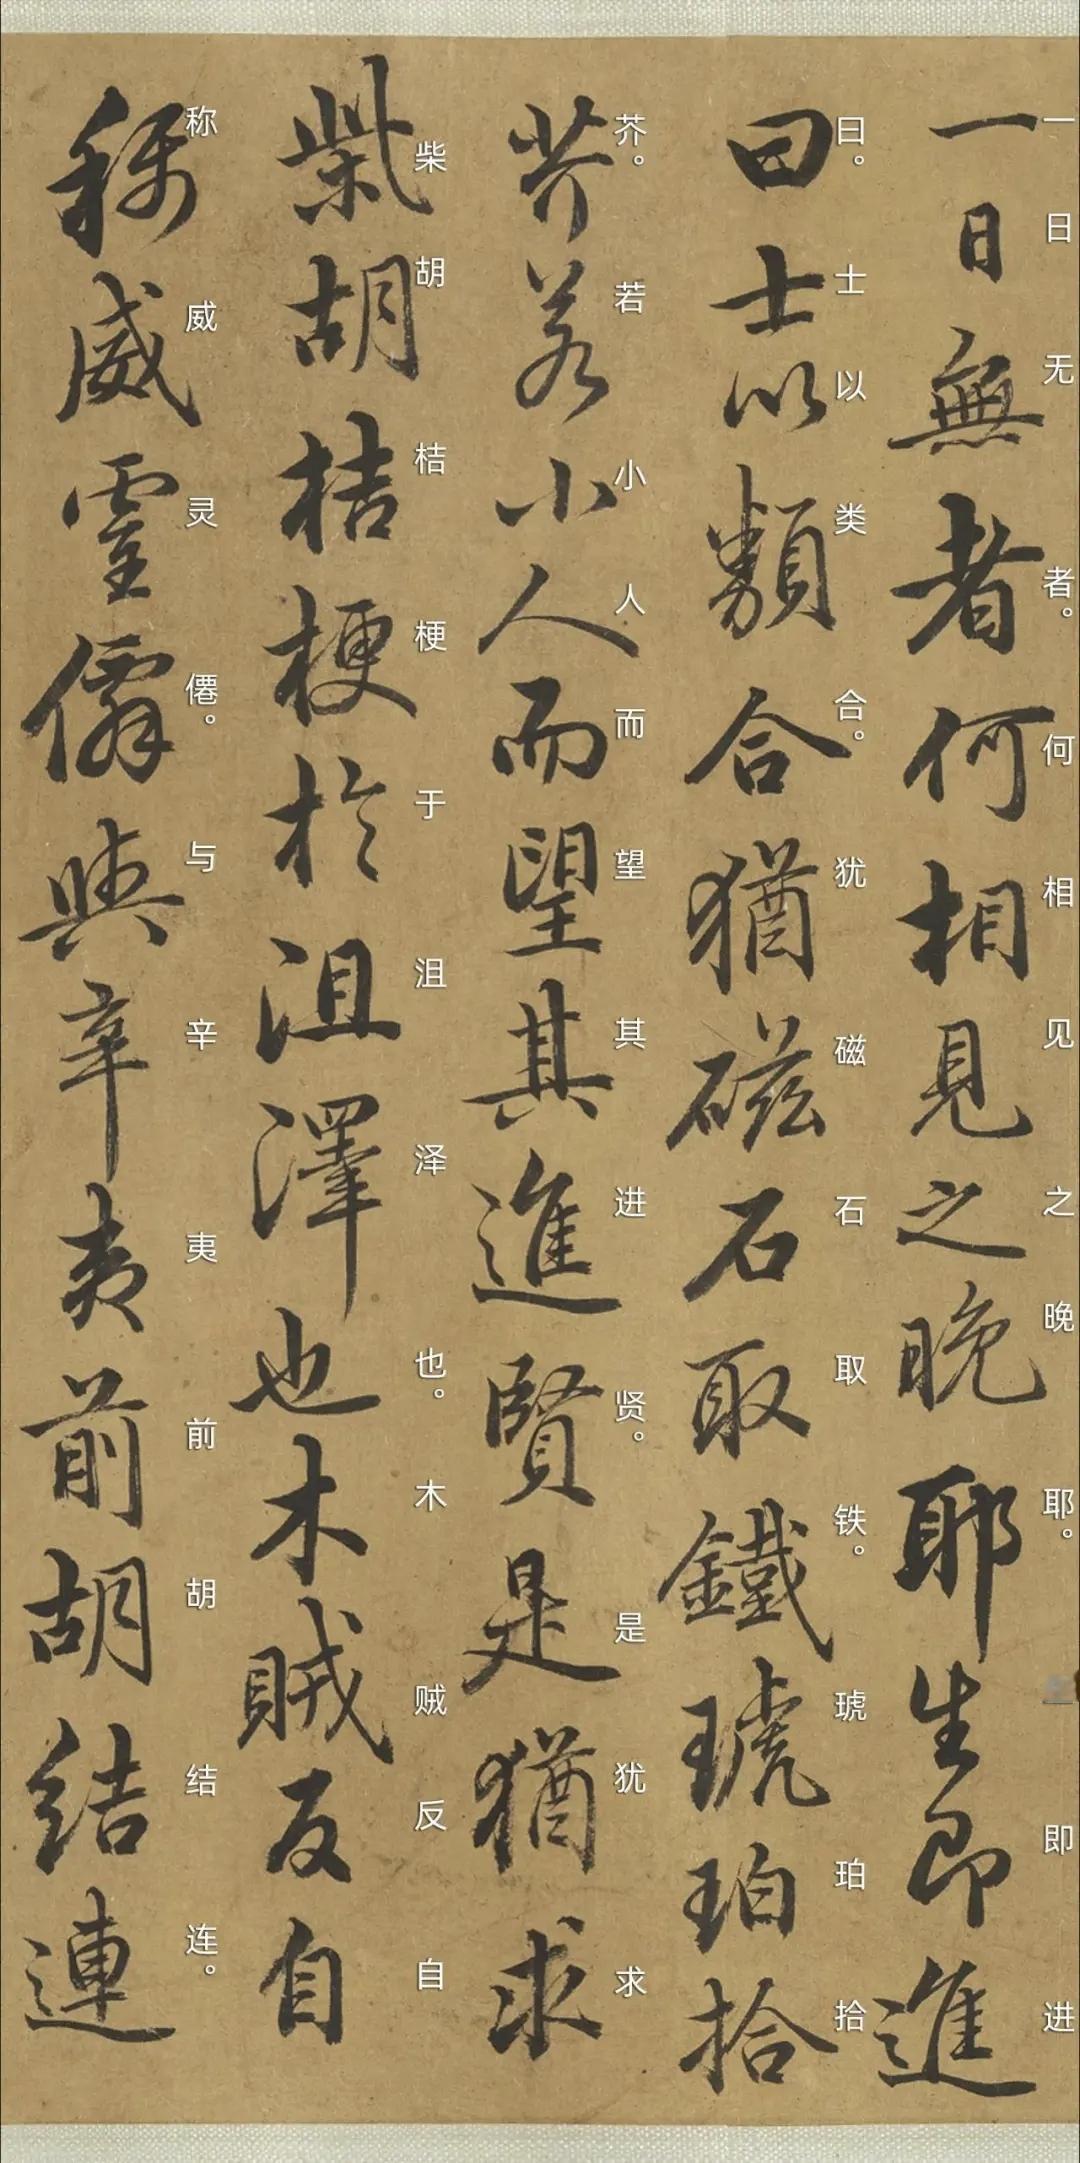 一日无者。何相见之晚耶。即进
一日無者何相見之晚耶生即進
曰。士以类合。犹磁石取铁。琥珀拾
曰士以類合猶磁石取鐵琥珀拾
芥。若小人而望其进贤。是犹求
芥若小人而望其進賢是猶求
柴胡桔梗于沮泽也。木贼反自
柴胡桔梗於沮澤也木賊反自
称威灵僊。与辛夷前胡结连。
稱威靈僊與辛夷前胡結連